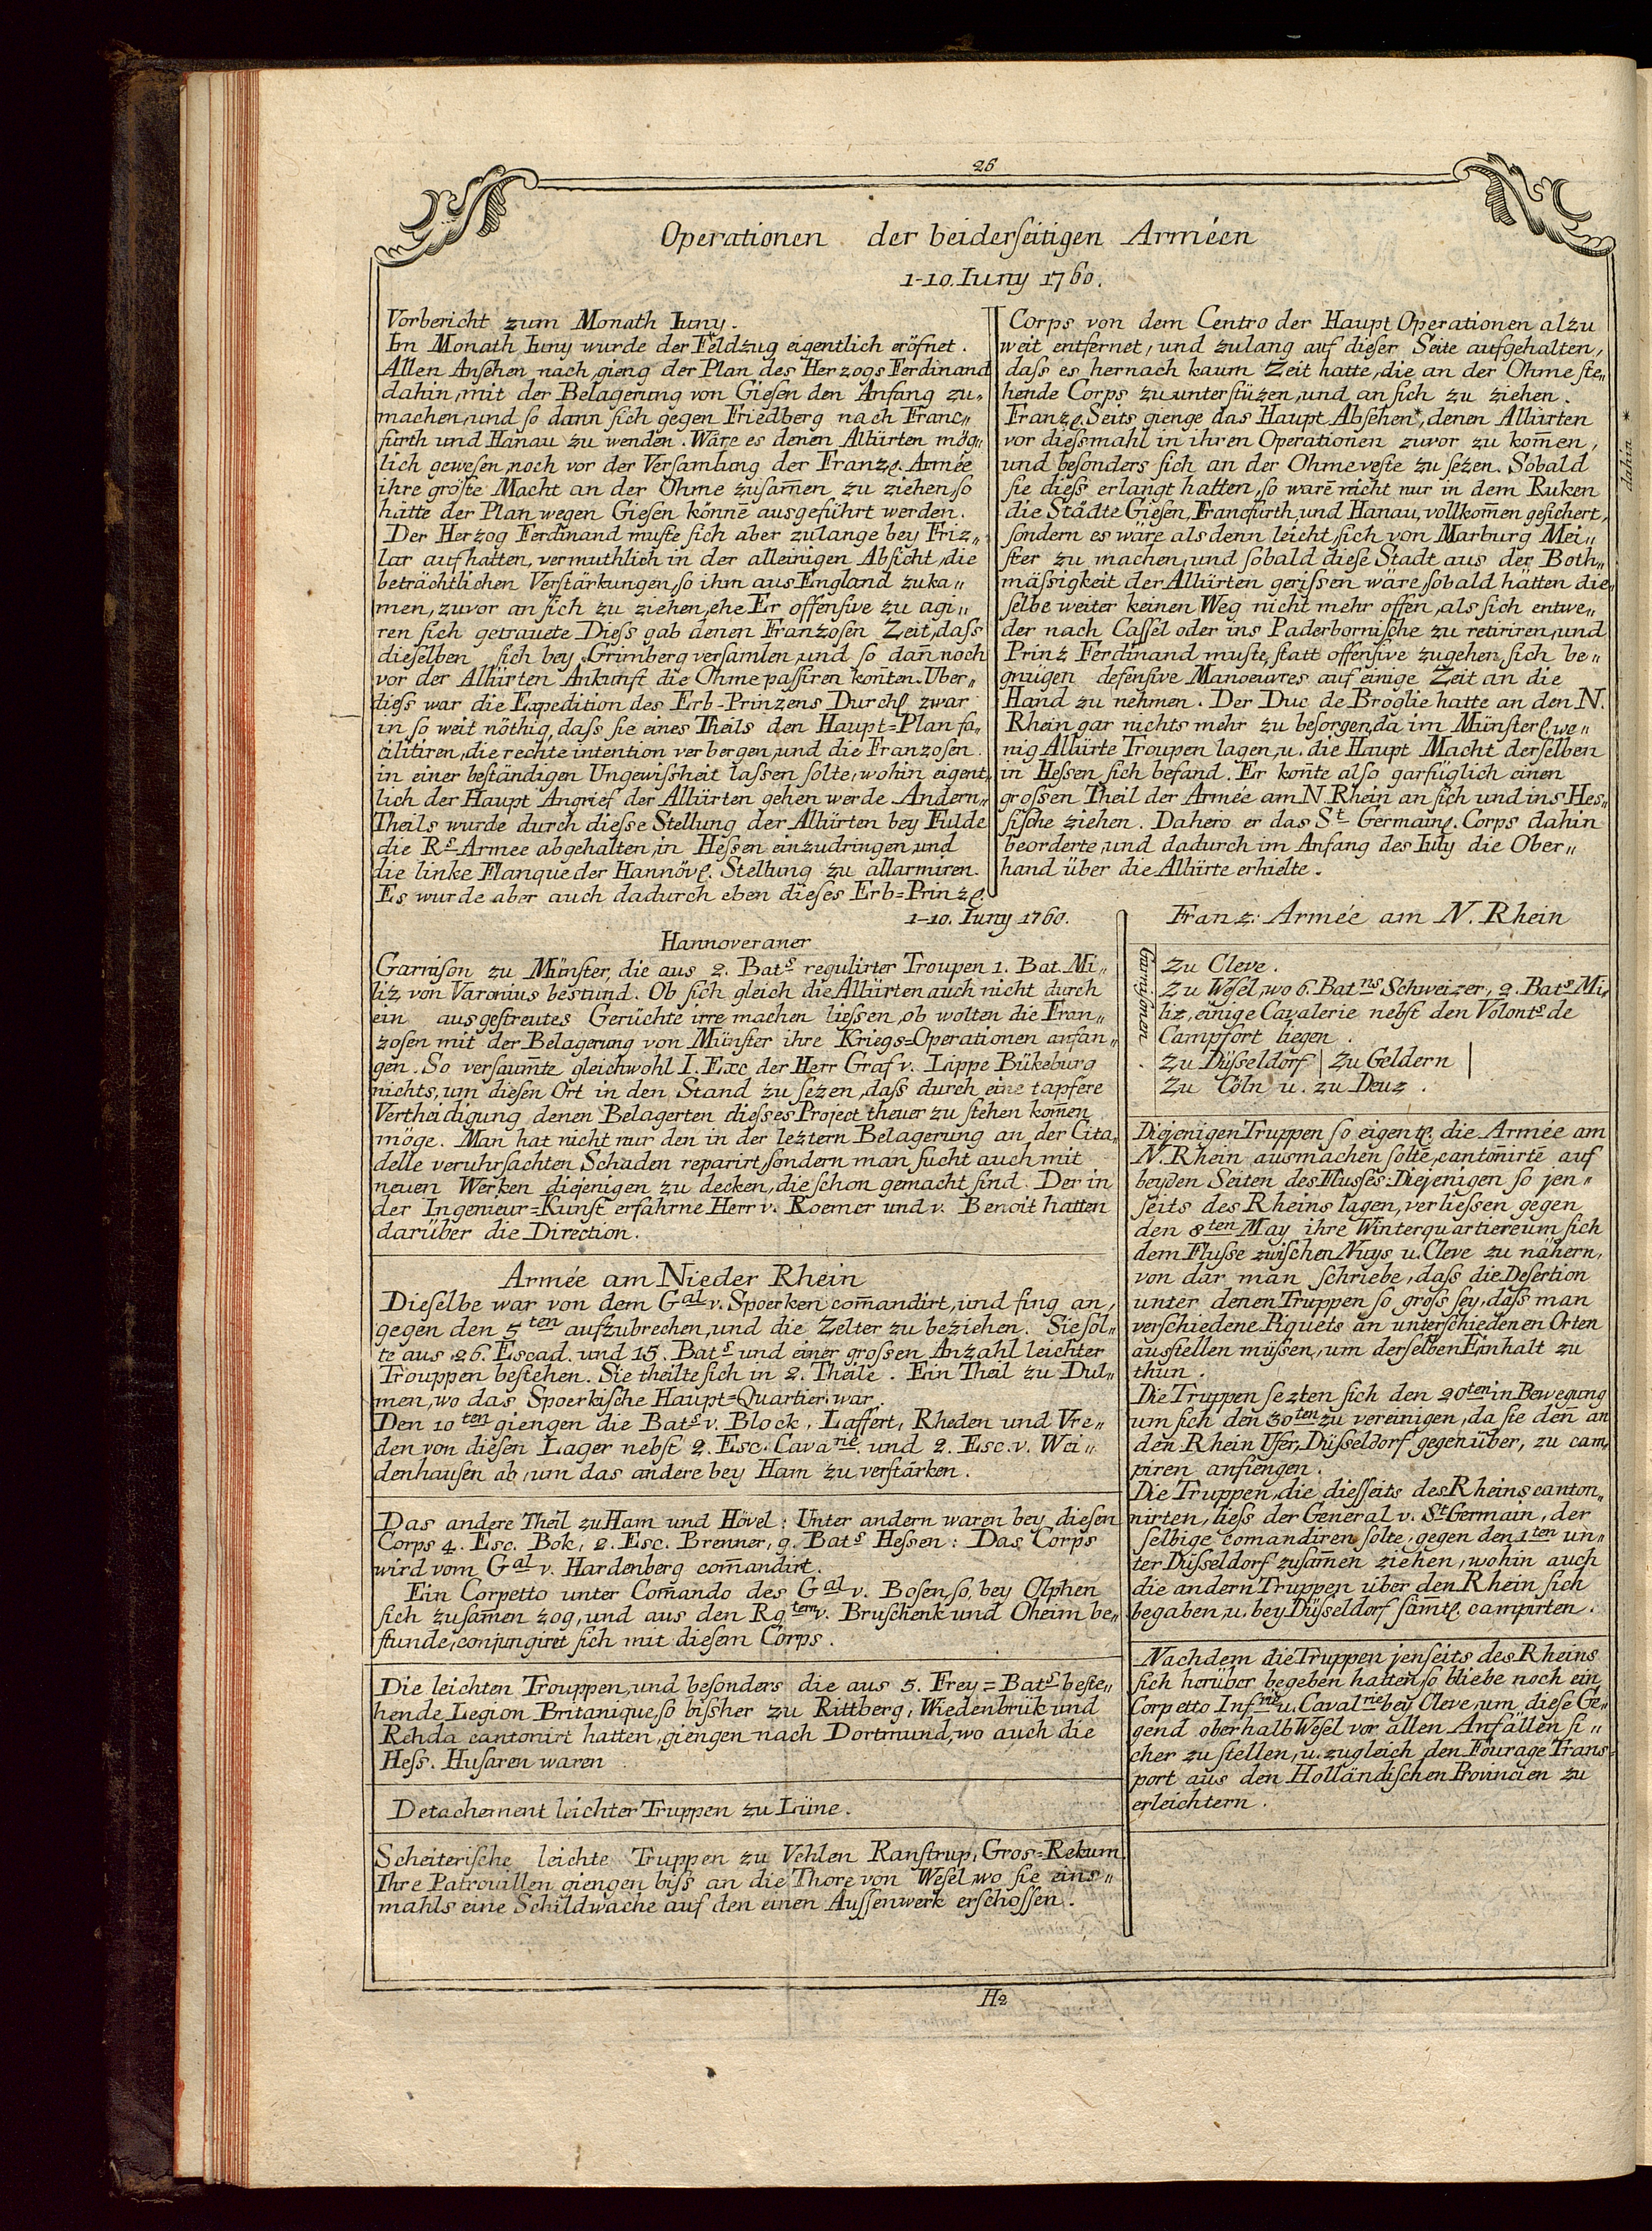 26
Operationen der beiderſeitigen Arméen
1-10. Iuny 1760.
Vorbericht zum Monath Iuny.
Im Monath Iuny wurde der Feldzug eigentlich eröfnet.
Allen Anſehen nach, gieng der Plan des Herzogs Ferdinand
dahin, mit der Belagerung von Gieſen den Anfang zu„
machen, und ſo dann ſich gegen Friedberg nach Franc„
furth und Hanau zu wenden. Wäre es denen Alliirten mög„
lich geweſen, noch vor der Verſamlung der Franzl. Armée
ihre gröſte Macht an der Ohme zuſam̄en zu ziehen, ſo
hätte der Plan wegen Gieſen könne ausgeführt werden.
Der Herzog Ferdinand muſte ſich aber zulange bey Friz„
lar aufhatten, vermuthlich in der alleinigen Abſicht, die
beträchtlichen Verſtärkungen, ſo ihm aus England zuka„
men, zuvor an ſich zu ziehen, ehe Er offenſive zu agi„
ren ſich getrauete. Dieſs gab denen Franzoſen Zeit, daſs
dieſelben ſich bey Grimberg verſamlen, und ſo dan̄ noch
vor der Alliirten Ankunft die Ohme paſſiren konten. Uber„
dieſs war die Expedition des Erb-Prinzens Durchl. zwar
in ſo weit nöthig, daſs ſie eines Theils den Haupt=Plan fa„
cilitiren, die rechte intention verbergen, und die Franzoſen
in einer beſtändigen Ungewiſsheit laſsen ſolte, wohin eigent„
lich der Haupt Angrief der Alliirten gehen werde. Andern„
Theils wurde durch dieſse Stellung der Alliirten bey Fulde
die Rs Armee abgehalten, in Heſsen einzudringen, und
die linke Flanque der Hannövl. Stellung zu allarmiren.
Es wurde aber auch dadurch eben dieſes Erb=Prinzl.
Corps von dem Centro der Haupt Operationen alzu
weit entfernet, und zulang auf dieſer Seite aufgehalten,
daſs es hernach kaum Zeit hatte, die an der Ohme ſte„
hende Corps zu unterſtüzen, und an ſich zu ziehen.
Franzl. Seits gienge das Haupt Abſehen*, denen Alliirten
vor dieſsmahl in ihren Operationen zuvor zu kom̄en,
und beſonders ſich an der Ohme veſte zu ſezen. Sobald
ſie dieſs erlangt hatten, ſo warē nicht nur in dem Ruken
die Städte Gieſen, Francfurth, und Hanau, vollkom̄en geſichert,
ſondern es wäre als denn leicht, ſich von Marburg Mei„
ſter zu machen, und ſobald dieſe Stadt aus der Both„
mäſsigkeit der Alliirten geriſsen wäre, ſobald hätten die„
ſelbe weiter keinen Weg nicht mehr offen, als ſich entwe„
der nach Caſſel oder ins Paderborniſche zu retiriren, und
Prinz Ferdinand muſte, ſtatt offenſive zugehen, ſich be„
gnügen defenſive Manoeuvres auf einige Zeit an die
Hand zu nehmen. Der Duc de Broglie hatte an den N.
Rhein gar nichts mehr zu beſorgen, da im Münſterl. we„
nig Alliirte Troupen lagen, u. die Haupt Macht derſelben
in Heſsen ſich befand. Er kon̄te alſo garfüglich einen
groſsen Theil der Armée am N. Rhein an ſich und ins Heſ„
ſiſche ziehen. Dahero er das St Germainl. Corps dahin
beorderte, und dadurch im Anfang des Iuly die Ober„
hand über die Alliirte erhielte.
* dahin
1-10. Iuny 1760.
Hannoveraner
Garniſon zu Münſter, die aus 2. Bats regulirter Troupen 1. Bat. Mi„
liz von Varonius beſtund. Ob ſich gleich die Alliirten auch nicht durch
ein ausgeſtreutes Gerüchte irre machen lieſsen, ob wolten die Fran„
zoſen mit der Belagerung von Münſter ihre Kriegs=Operationen anfan„
gen. So verſaum̄te gleichwohl I. Exc der Herr Graf v. Lippe Bükeburg
nichts, um dieſen Ort in den Stand zu ſezen, daſs durch eine tapfere
Vertheidigung denen Belagerten dieſses Project theuer zu ſtehen kom̄en
möge. Man hat nicht nur den in der leztern Belagerung an der Cita„
delle veruhrſachten Schaden reparirt, ſondern man ſucht auch mit
neuen Werken diejenigen zu decken, die ſchon gemacht ſind. Der in
der Ingenieur=Kunſt erfahrne Herr v. Roemer und v. Benoit hatten
darüber die Direction.
Armée am Nieder Rhein
Dieſelbe war von dem Gal v. Spoerken com̄andirt, und fing an,
gegen den 5ten aufzubrechen, und die Zelter zu beziehen. Sie ſol„
te aus 26. Escad. und 15. Bats und einer groſsen Anzahl leichter
Trouppen beſtehen. Sie theilte ſich in 2. Theile. Ein Theil zu Dul„
men, wo das Spoerkiſche Haupt=Quartier war.
Den 10ten giengen die Bats v. Block, Laffert, Rheden und Vre„
den von dieſen Lager nebſt 2. Esc. Cavarie. und 2. Esc. v. Wei„
denhauſen ab, um das andere bey Ham zu verſtärken.
Das andere Theil zu Ham und Hövel: Unter andern waren bey dieſen
Corps 4. Esc. Bok, 2. Esc. Bremer, 9. Bats Heſsen: Das Corps
wird vom Gal v. Hardenberg com̄andirt.
Ein Corpetto unter Com̄ando des Gal v. Boſen ſo, bey Olphen
ſich zuſam̄en zog, und aus den Rgtem v. Bruſchenk und Oheim be„
ſtunde, conjungiret ſich mit dieſem Corps.
Die leichten Trouppen, und beſonders die aus 5. Frey=Bats beſte„
hende Legion Britanique, ſo biſsher zu Rittberg, Wiedenbrük und
Rehda cantonirt hatten, giengen nach Dortmund, wo auch die
Heſs. Huſaren waren
Detachement leichter Truppen zu Lüne.
Scheiteriſche leichte Truppen zu Vehlen Ranſtrup, Gros=Rekum
Ihre Patrouillen giengen biſs an die Thore von Weſel, wo ſie eins„
mahls eine Schildwache auf den einen Auſſenwerk erſchoſſen.
Franz: Armée am N. Rhein
Garniſonen
Zu Cleve.
Zu Weſel, wo 6. Batns Schweizer, 2. Bats Mi„
liz, einige Cavalerie nebſt den Volonts de
Campfort liegen.
Zu Düſseldorf | Zu Geldern |
Zu Cöln u. zu Deuz.
Diejenigen Truppen ſo eigentl. die Armée am
N. Rhein ausmachen ſolte, cantonirte auf
beyden Seiten des Fluſses: Diejenigen ſo jen„
ſeits des Rheins lagen, verlieſsen gegen
den 8ten May ihre Winterquartiere um ſich
dem Fluſse zwiſchen Nuys u. Cleve zu nähern,
von dar man ſchriebe, daſs die Deſertion
unter denen Truppen ſo groſs ſey, daſs man
verſchiedene Piquets an unterſchiedenen Orten
ausſtellen müſsen, um derſelben Einhalt zu
thun.
Die Truppen ſezten ſich den 20ten in Bewegung
um ſich den 30ten zu vereinigen, da ſie den̄ an
den Rhein Ufer, Düſſeldorf gegenüber, zu cam„
piren anfiengen.
Die Truppen, die dieſſeits des Rheins canton„
nirten, lieſs der General v. St Germain, der
ſelbige com̄andiren ſolte, gegen den 1ten un„
ter Düſseldorf zuſam̄en ziehen, wohin auch
die andern Truppen über den Rhein ſich
begaben, u. bey Düſseldorf ſäm̄tl. campirten.
Nachdem die Truppen jenſeits des Rheins
ſich herüber begeben hatten, ſo bliebe noch ein
Corpetto Infrie u. Cavalrie bey Cleve, um dieſe Ge„
gend oberhalb Weſel vor allen Anfällen ſi„
cher zu ſtellen, u. zugleich den Fourage Trans„
port aus den Holländiſchen Provincien zu
erleichtern.
H2